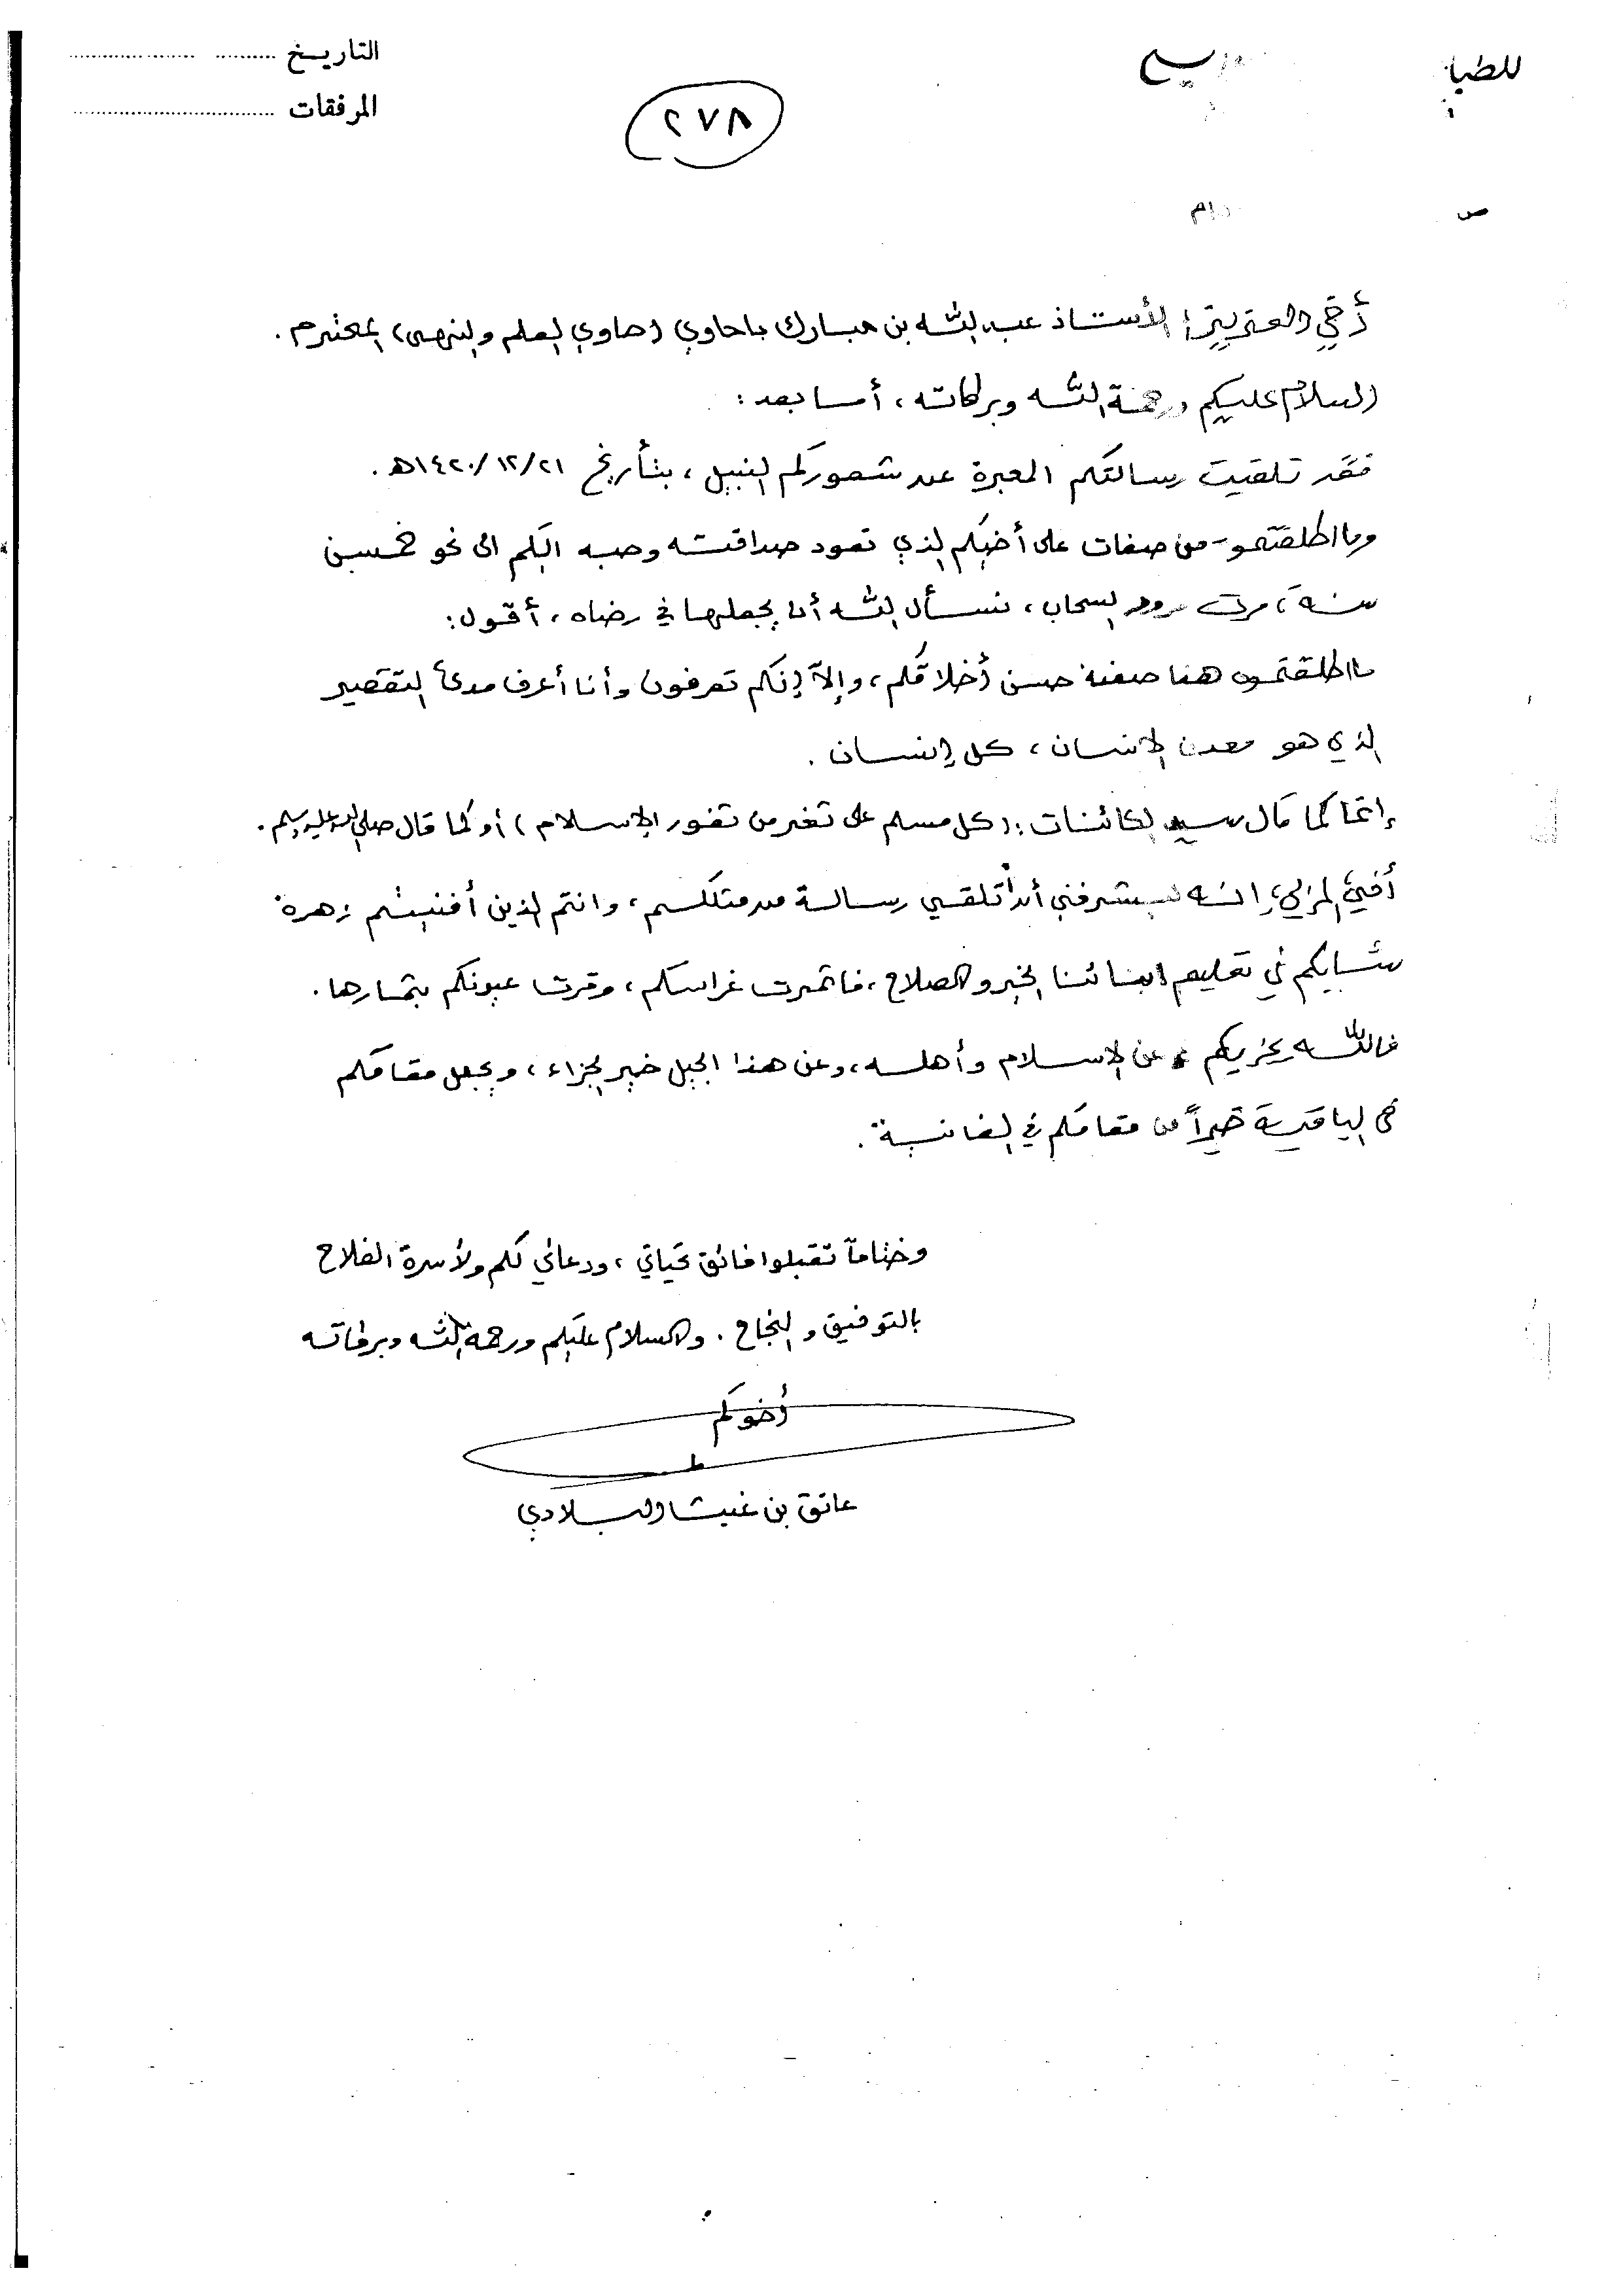 التاريخ
المرفقات
٢٧٨
أخي العزيز: الأستاذ عبد الله بن مبارك باحاوي (حاوي العلم والنهى) المحترم.
السلام عليكم ورحمة الله وبركاته، أما بعد:
فقد تلقيت رسالتكم المعبرة عن شعوركم النبيل، بتأريخ ١٤٢٠/١٢/٢١هـ.
وما اطلقتمو من صفات على أخيكم الذي تعود صداقته وحبه اليكم الى نحو خمسين
سنة، مرت مرور السحاب، نسأل الله أن يجعلها في رضاه، أقول:
ما اطلقتموه هنا صفة حسن أخلاقكم، وإلاّ إنكم تعرفون وأنا أعرف مدى التقصير
الذي هو معدن الانسان، كل إنسان.
إنما كما قال سيد الكائنات: (كل مسلم على ثغر من ثغور الإسلام) أو كما قال صلى الله عليه وسلم.
أخي، إنه ليشرفني أن أتلقى رسالة من مثلكم، وانتم الذين أفنيتم زهرة
شبابكم في تعليم ابنائنا الخير والصلاح، فاثمرت غراسكم، وقرت عيونكم بثمارها.
فالله يجزيكم عن الإسلام وأهله، وعن هذا الجيل خير الجزاء، ويجعل مقامكم
في الباقية خيراً من مقامكم في الفانية.
وختاماً تقبلوا فائق تحياتي، ودعائي لكم ولأسرة الفلاح
بالتوفيق والنجاح. والسلام عليكم ورحمة الله وبركاته
أخوكم
عاتق بن غيث البلادي